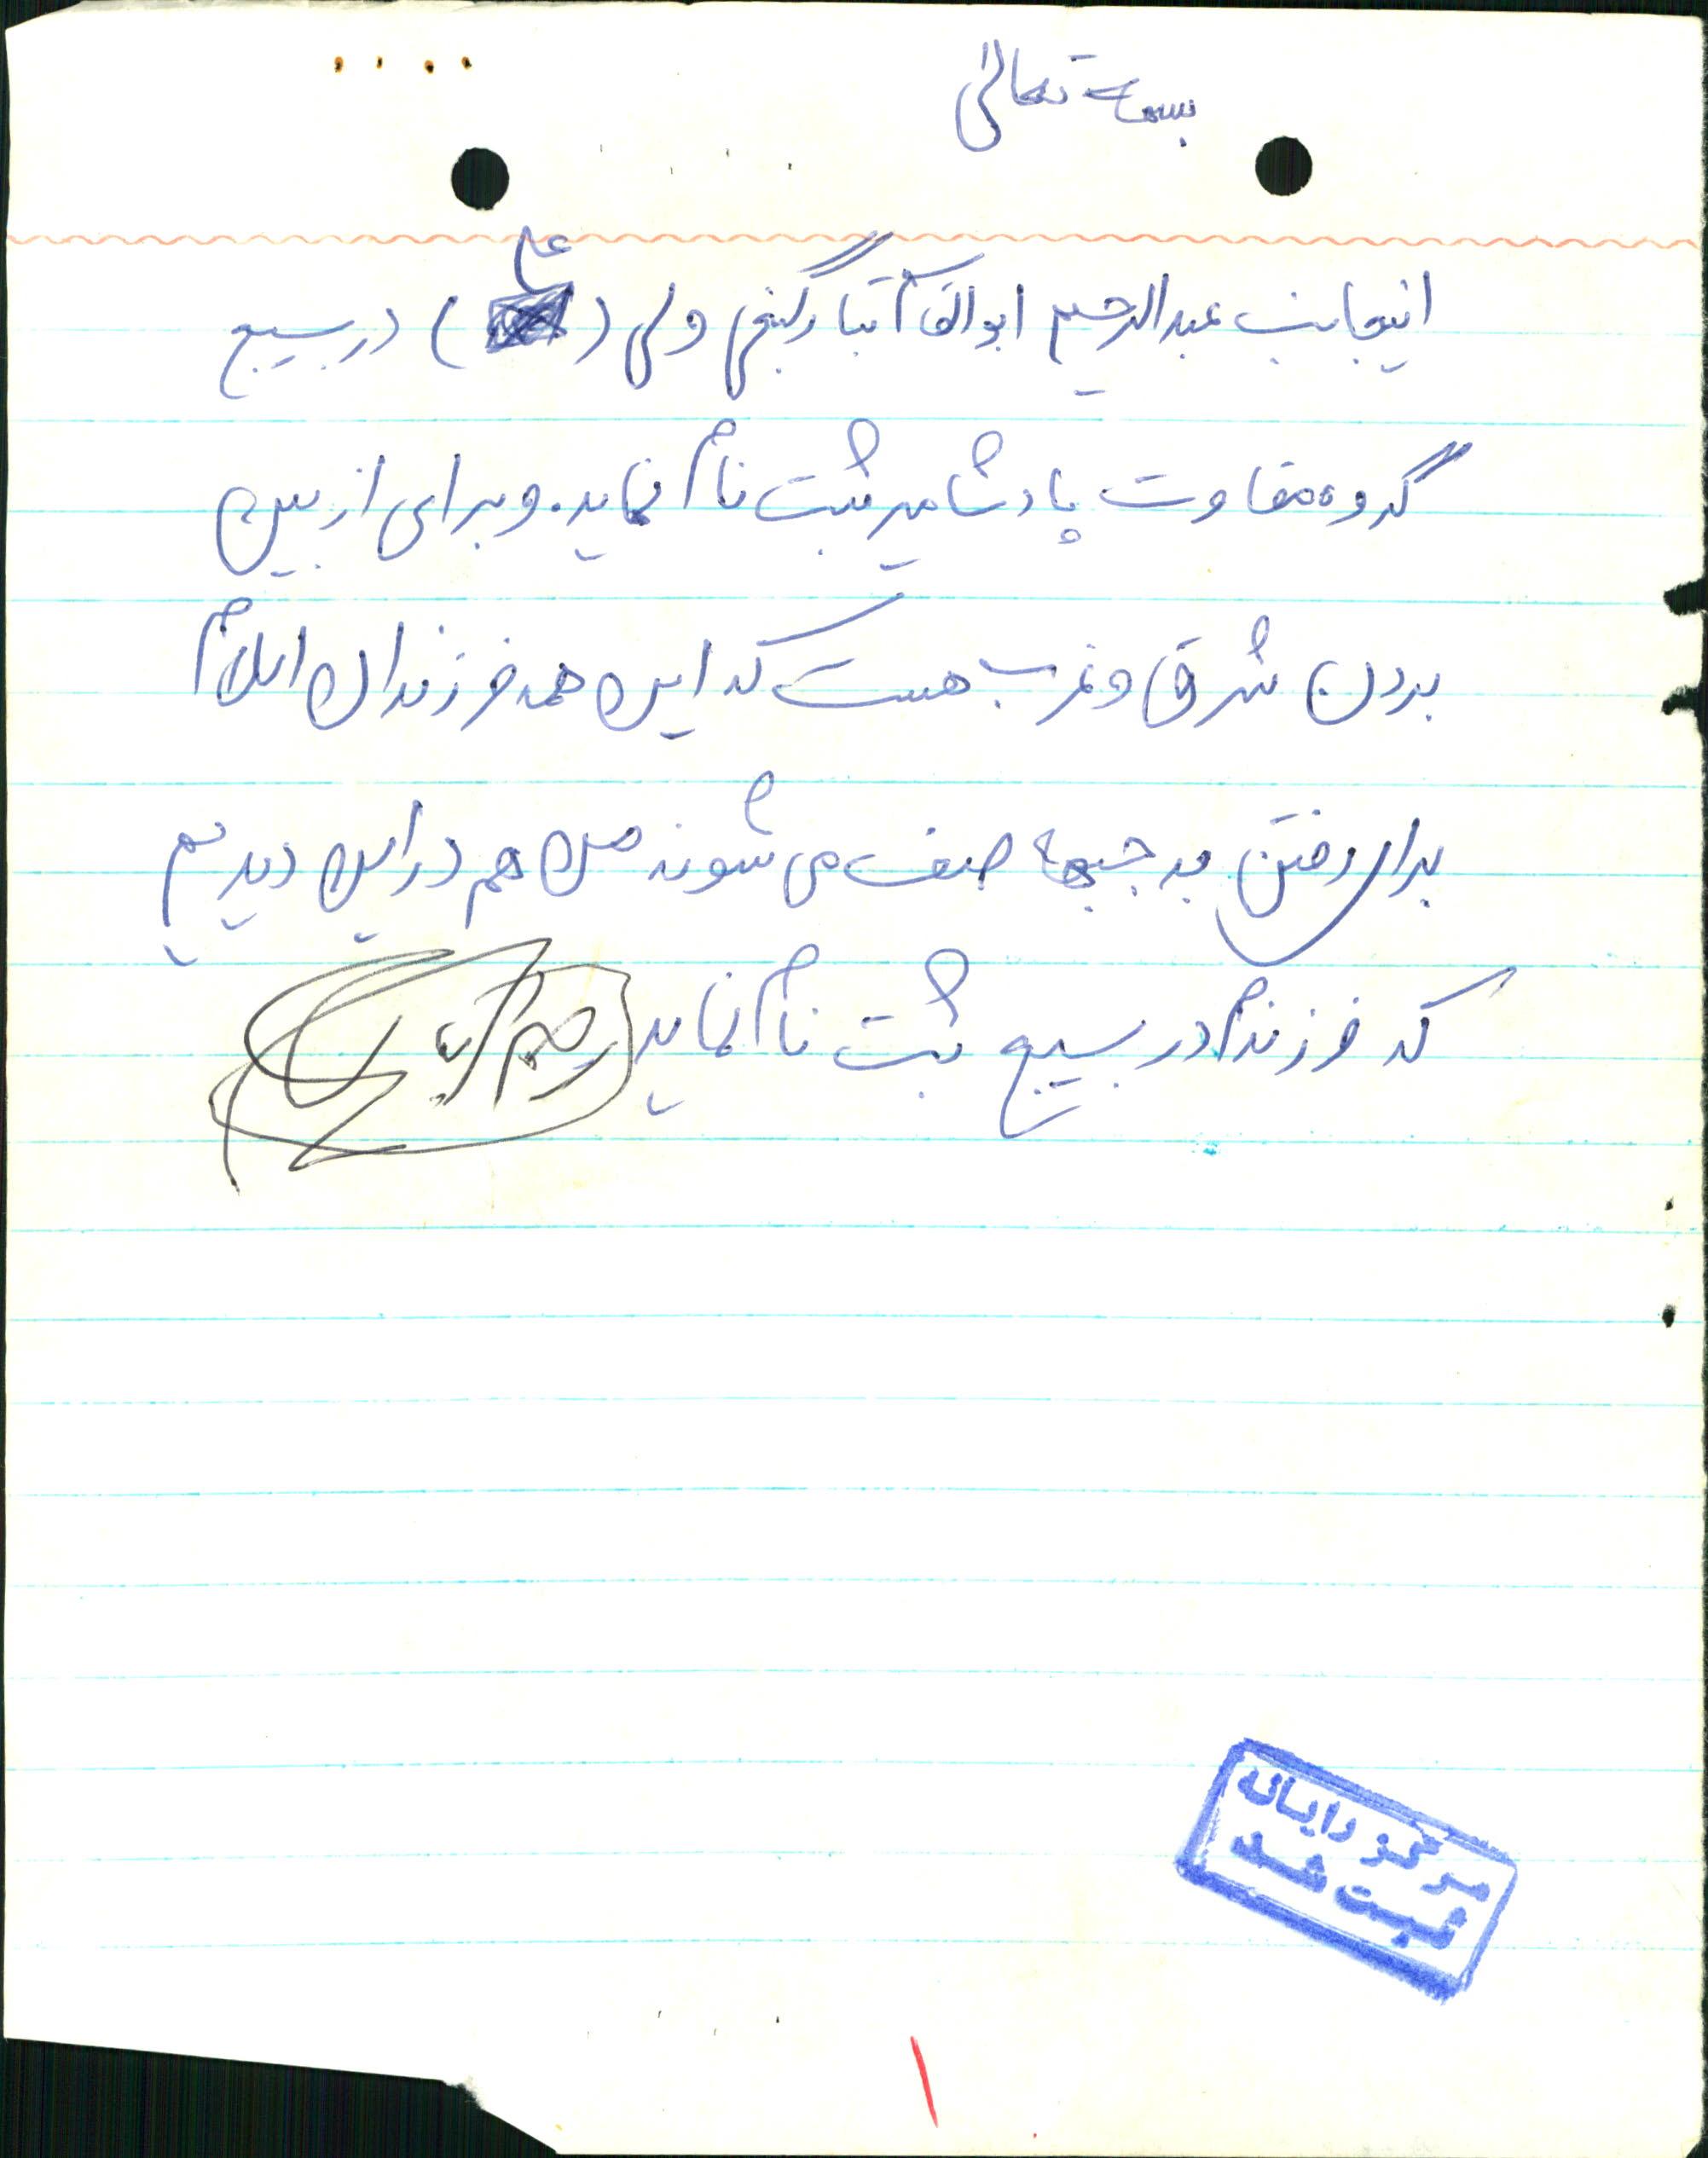 بسمه تعالی
اینجانب عبدالرحیم ولی (علی) در بسیج
گروه مقاوت پادشامیر ثبت نام نماید. و برای از بین
بردن شرق و غرب هست که این همه فرزندان اسلام
برای رفتن به جبهها صف می شوند من هم در این دیدیم
که فرزندم در بسیج ثبت نام نماید
مرکز رایانه
ثبت شد